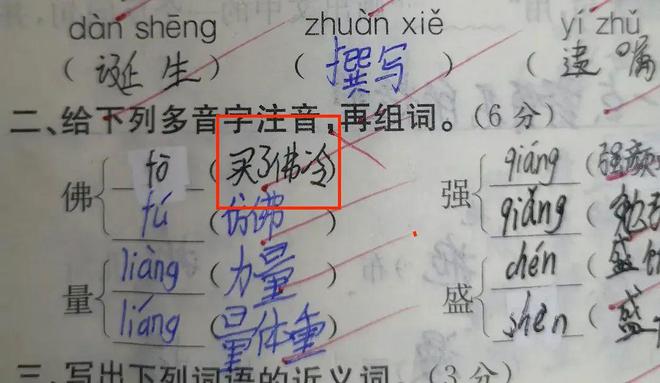 dàn shēng zhuàn xiě yí zhǔ
(诞生) (撰写) (遗嘱
二、给下列多音字注音,再组词。(6分)
佛 fó (买了佛冷) 强 qiáng (强颜
fú (仿佛) qiǎng (勉
量 liàng (力量) 盛 chén (盛
liáng (量体重) shèn (盛
三、写出下列词语的近义词。(3分)